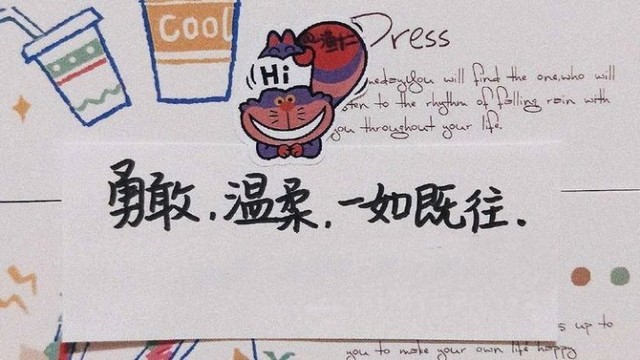 Cool
Hi
Dress
meday you will find the one, who will
sten to the rhythm of falling rain with
you throughout your life.
勇敢，温柔，一如既往．
s up to
you to make your own life happy